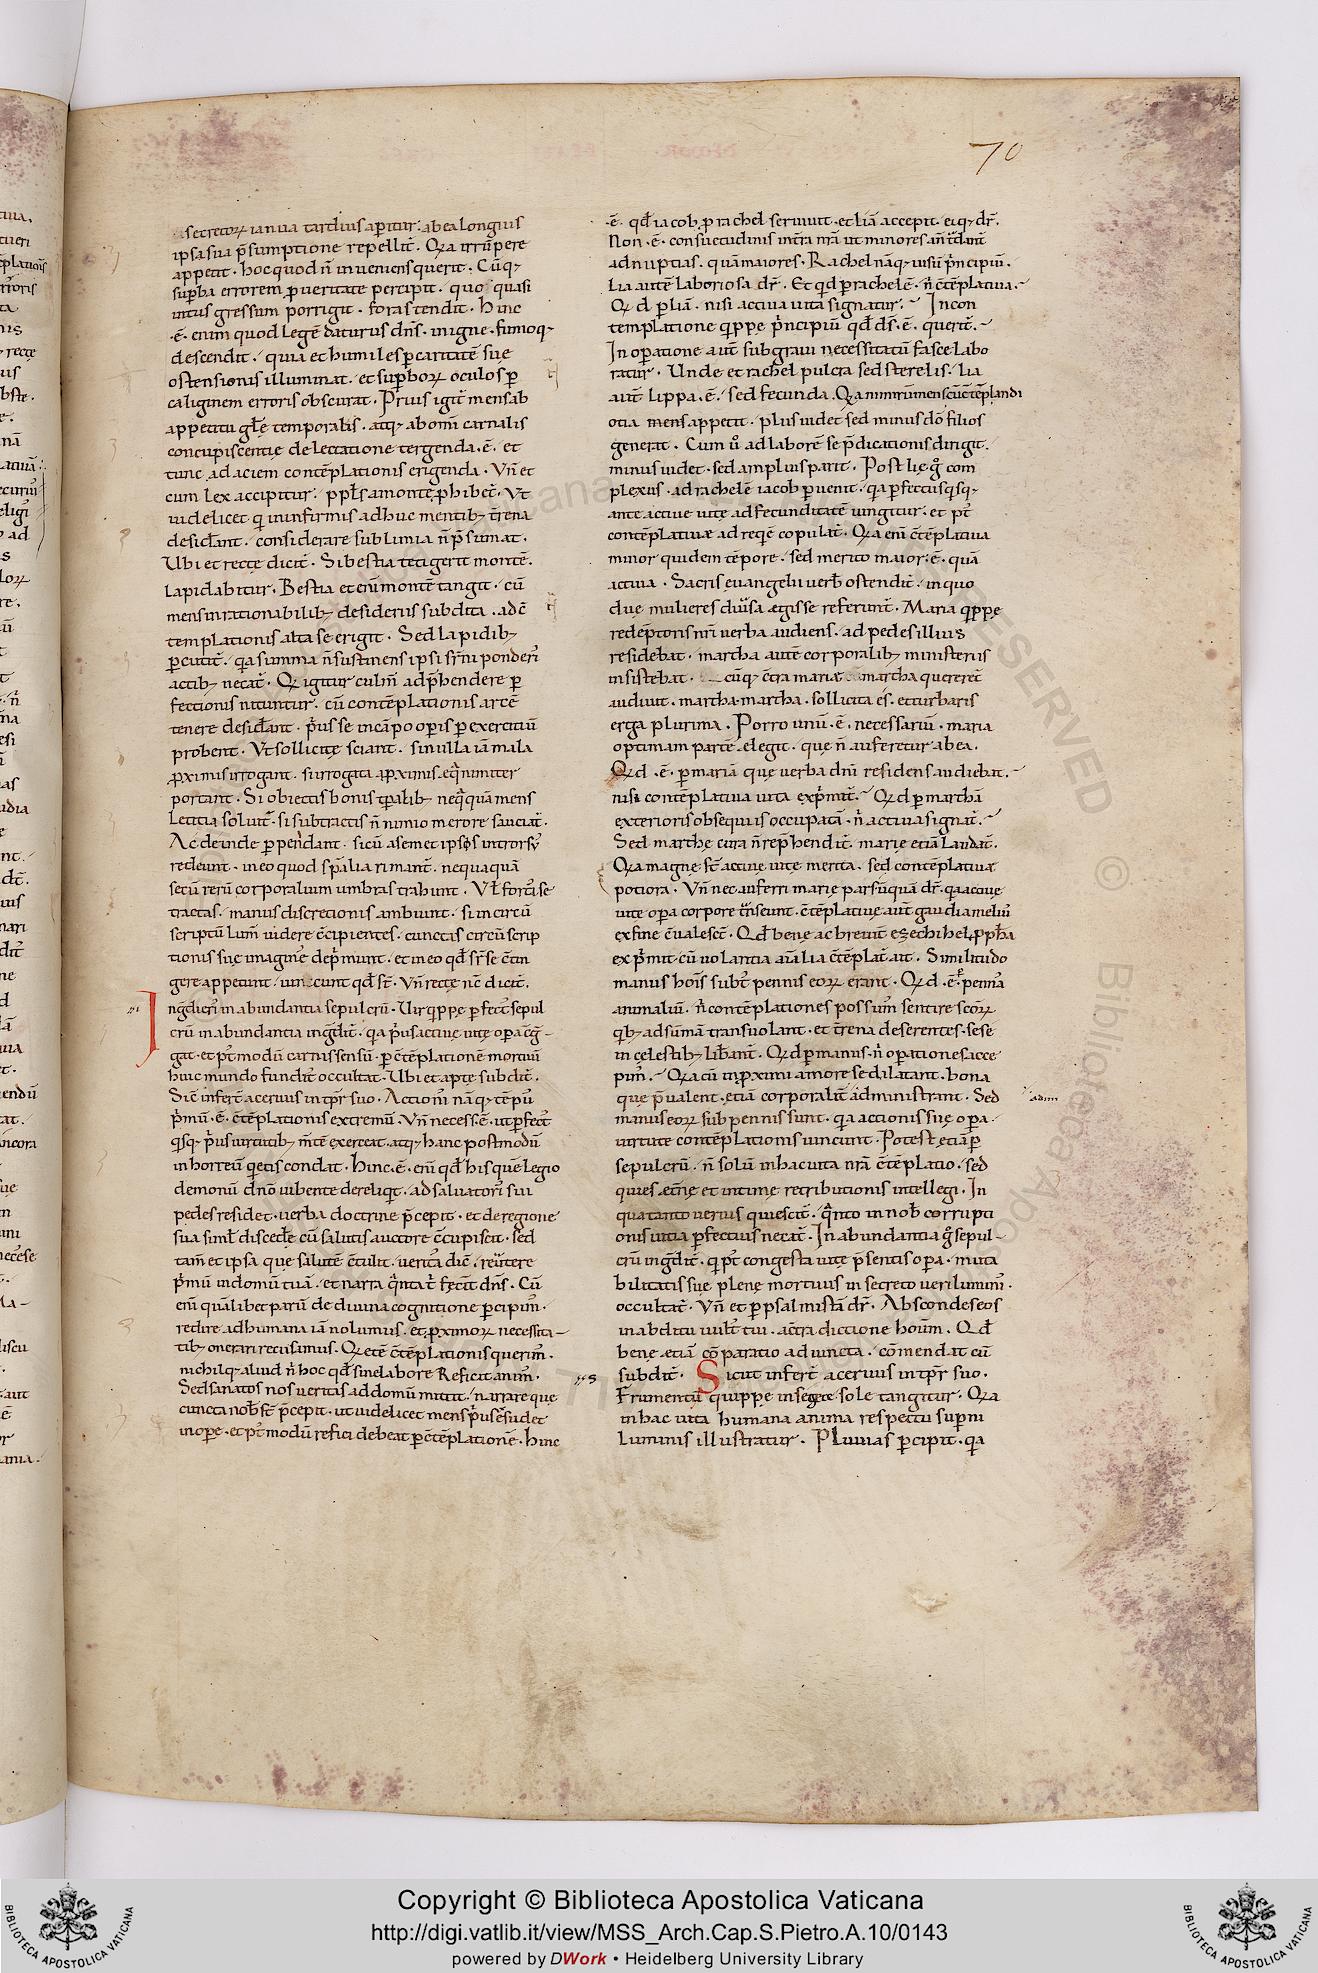 70
a secretorꝝ ianua tardius ap̄itur. ab ea longius
ipsa sua p̄sumptione repellit̄. Qꝛa irrūpere
appetit. hoc quod n̄ inueniens querit. Cūq;
sup̄ba errorem p̄ ueritate percipit. quo quasi
intus gressum porrigit. foras tendit. hinc
.ē. enim quod legē daturus dn̄s. in igne. fumoq;
descendit. quia et humiles p̄ caritatē suę
ostensionis illuminat. et sup̄borꝝ oculos p̄
caliginem erroris obscurat. Prius igit̄ mens ab
appetitu gl̄ę temporalis. atq; ab om̄i carnalis
concupiscentię delectatione tergenda .ē. et
tunc ad aciem contēplationis erigenda. Vn̄ et
cum lex accipitur. ppl̄s a monte p̄hibet̄. Vt
uidelicet q̄ in infirmis adhuc mentib; t̄rena
desid̄ant. considerare sublimia n̄ p̄sumat.
Vbi et rectę dicit̄. Si bestia tetigerit montē.
lapidabitur. Bestia et eni᷑ montē tangit. cū
mens inrationabilib; desideriis subdita. ad cō
templationis alta se erigit. Sed lapidib;
p̄cutit̄. q̄a summa n̄ sustinens ipsi sr̄ni ponderi᷑
actib; necat̄. Q̄ igitur culm̄ adp̄hendere p̄
fectionis nituntur. cū contēplationis arcē
tenere desid̄ant. p̄us se in cāpo op̄is p̄ exercitiū
probent. Vt sollicitę sciant. si nulla iā mala
ꝓximis irrogant. si irrogata a ꝓximis eq̄nimiter
portant. Si obiectis bonis tp̄alib; neq̄quā mens
letitia soluit̄. si subtractis n̄ nimio merore sauciat̄.
Ac deinde p̄pendant. si cū a semet ipsos introrsꝰ
redeunt. in eo quod sp̄alia rimant̄. nequaquā
secū rerū corporalium umbras trahunt. Vl̄ fort̄ se
tractas. manus discretionis ambiunt. si in circū
scriptū lum̄ uidere c̄cipientes. cunctas circū scrip
tionis suę imagine᷑ dep̄munt. et in eo qd̄ sr̄ se c̄tin
gere appetunt. uincunt qd̄ st̄. Vn̄ rectę nc̄ dicit̄.
Ingdieri᷑ in abundantia sepulcrū. Vir q̄ppe p̄fect᷑ sepul
crū in abundantia ingdit̄. q̄a p̄us actiuę uitę op̄a c̄g̅
gat. et pt᷑ modū carnis sensū. p̄ c̄tēplationē mortuū
huic mundo fundit᷑ occultat. Vbi et aptę subdit̄.
Sic̄ infert̄ aceruus in tpr̄ suo. Actioni᷑ nāq; tēpꝰ
p̄mū .ē. c̄tēplationis extremū. Vn̄ necess.ē. ut p̄fect᷑
q̄sq; p̄us uirtutib; m̄tē exerceat. atq; hanc postmodū
in horreū q̄etis condat. hinc .ē. eni᷑ qd̄ his quē legio
demonū dn̄o iubente dereliq̄t. ad saluatori᷑ sui
pedes residet. uerba doctrine p̄cepit. et de regione
sua simł discedere cū salutis auctore c̄cupiscit. sed
tam̄ et ipsa que salutē c̄tulit. uerita᷑ dic̄. reu᷑tere
p̄mū in domū tuā. et narra q̄nta t᷑ fec̄it dn̄s. Cū
eni᷑ quālibet parū de diuina cognitione p̄cipim᷑.
redire ad humana iā nolumus. et ꝓximorꝝ necessita-
tib; onerari recusimus. Qꝛetē c̄tēplationis querim᷑.
nichilq; aliud n̄ hoc qd̄ sine labore Reficit anim᷑.
Sed sanatos nos ueritas ad domū mittit. narrare que
cuncta nob̄ fc̄t p̄cepit. ut uidelicet mens p̄us exsudet
in opere. et pt᷑ modū refici debeat p̄ c̄tēplationē. hinc
.ē. qd̄ iacob p̄ rachel seruiuit. et liā accepit. eiq; dr̄.
Non .ē. consuetudinis in t̄ra n̄ra ut minores an̄ t̄dant
ad nuptias. quā maiores. Rachel nāq; uisū p̄ncipiū.
Lia autē laboriosa dr̄. Et qd̄ p̄ rachelē. n̄ c̄tēplatiua.
Qd̄ p̄ liā. nisi actiua uita signatur. In con
templatione q̄ppę p̄ncipiū qd̄ ds̄ .ē. querit̄.
In op̄atione aut̄ sub graui necessitatū fasce labo
ratur. Vnde et rachel pulcra sed sterelis. lia
aut̄ lippa .ē. sed fecunda. Qꝛa nimirū mens cū c̄tēplandi
otia mens appetit. plus uidet sed minus dō filios
generat. Cum u᷑ ad laborē se p̄dicationis dirigit.
minus uidet. sed amplius parit. Post lię g᷑ com
plexus. ad rachelē iacob p̄uenit. q̄a p̄fectus q̄sq;
ante actiuę uitę ad fecunditatē iungitur. et pt᷑
contēplatiuæ ad req̄ē copulat̄. Qꝛa eni᷑ c̄tēplatiua
minor quidem tēpore. sed merito maior .ē. quā
actiua. Sacris euangelii uerb̄ ostendit̄. in quo
duę mulieres diu᷑sa ægisse referunt̄. Maria q̄ppę
redēptoris nr̄i uerba audiens. ad pedes illius
residebat. martha autē corporalib; ministeriis
insistebat. cūq; c̄tra mariæ martha quereret̄
audiuit. martha. martha. sollicita es. et turbaris
erga plurima. Porro unū .ē. necessariū. maria
optimam partē elegit. que n̄ auferetur ab ea.
Qd̄ .ē. p̄ mariā que uerba dn̄i residens audiebat.
nisi contēplatiua uita exp̄mit̄. Qd̄ p̄ marthā
exterioris obsequiis occupatā. n̄ actiua signat̄.
Sed marthę cura n̄ rep̄hendit̄. marię etiā laudat̄.
Qꝛa magnę st̄ actiuę uitę merita. sed contēplatiuæ
potiora. Vn̄ nec auferri marię pars n̄quā dr̄. q̄a actiuę
uitę op̄a corpore t̄nseunt. c̄tēplatiuę aut̄ gaudia meliꝰ
ex fine c̄ualesct̄. Qd̄ bene ac breuit̄ ezechihel ꝓph̄a
exp̄mit cū uolantia aīalia c̄tēplat̄ ait. Similitudo
manus hoīs subt̄ pennis eorꝝ erant. Qd̄ .ē. p̄ pennā
animaliū. n̄ contēplationes possum᷑ sentire sc̄orꝝ
q̄b; ad sūmā transuolant. et t̄rena deserentes. sese
in cęlestib; lib̄ant. Qd̄ p̄ manus. n̄ op̄ationes acce
pim᷑. Qꝛa cū in ꝓximi amore se dilatant. bona
que p̄ualent. etiā corporalit̄ administrant. Sed
manus eorꝝ sub pennis sunt. q̄a actionis suę op̄a.
uirtute contēplationis uincunt. Potest etiā p̄
sepulcrū. n̄ solū in hac uita nr̄ā c̄tēplatio. sed
quies æt̄nę et intimę retributionis intellegi. In
qua tanto uerius quiescit̄. q̄nto in nob̄ corrupti
onis uitia p̄fectius necat̄. In abundantia g᷑ sepul-
crū ingdit̄. q̄ pt᷑ congesta uitę p̄sentis op̄a. muta
bilitatis suę plenę mortuus in secreto ueri luminꝰ.
occultat̄. Vn̄ et p̄ psalmistā dr̄. Abscondes eos
in abditu uult᷑ tui. a c̄tra dictione hoūm. Qd̄
bene etiā cō paratio adiuncta. cōmendat cū
subdit̄. Sicut infert̄ aceruus in tpr̄ suo.
Frumentū quippe in segete sole tangitur. Qꝛa
in hac uita humana anima respectu sup̄ni
luminis illustratur. Pluuias p̄cipit. q̄a
Copyright © Biblioteca Apostolica Vaticana
http://digi.vatlib.it/view/MSS_Arch.Cap.S.Pietro.A.10/0143
powered by DWork • Heidelberg University Library
BIBLIOTECA APOSTOLICA VATICANA
BIBLIOTECA APOSTOLICA VATICANA